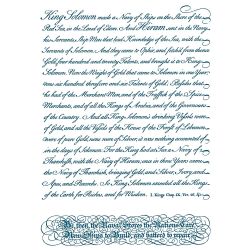 King Solomon made a Navy of Ships on the Shore of the
Red Sea, in the Land of Edom. And Hiram sent in the Navy
his Servants, Ship Men that had Knowledge of the Sea, with the
Servants of Solomon. And they came to Ophir, and fetch'd from thence
Gold, four hundred and twenty Talents, and brought it to King
Solomon. Now the Weight of Gold that came to Solomon in one Year,
was six hundred threescore and six Talents of Gold. Besides that
he had of the Merchant Men, and of the Traffick of the Spice
Merchants, and of all the Kings of Arabia, and of the Governours
of the Country. And all King Solomon's drinking Vessels were
of Gold, and all the Vessels of the House of the Forest of Lebanon,
were of pure Gold, none were of Silver, it was nothing accounted of
in the days of Solomon. For the King had at Sea a Navy of
Tharshish, with the Navy of Hiram, once in three Years came
the Navy of Tharshish, bringing Gold, and Silver, Ivory and
Apes, and Peacocks. So King Solomon exceeded all the Kings of
the Earth for Riches, and for Wisdom. I. Kings Chap. IX. Ver. 26. &c.
the Naval Stores the Nations
Ships to Build, and batter'd to repair